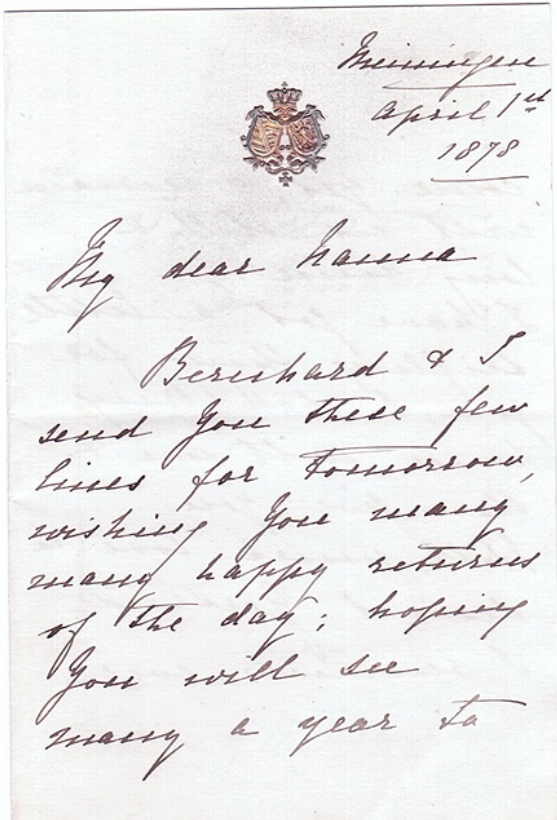 Meiningen
April 1st
1878
My dear Nanna
Bernhard & I
send You these few
lines for tomorrow,
wishing You many
many happy returns
of the day; hoping
You will see
many a year to